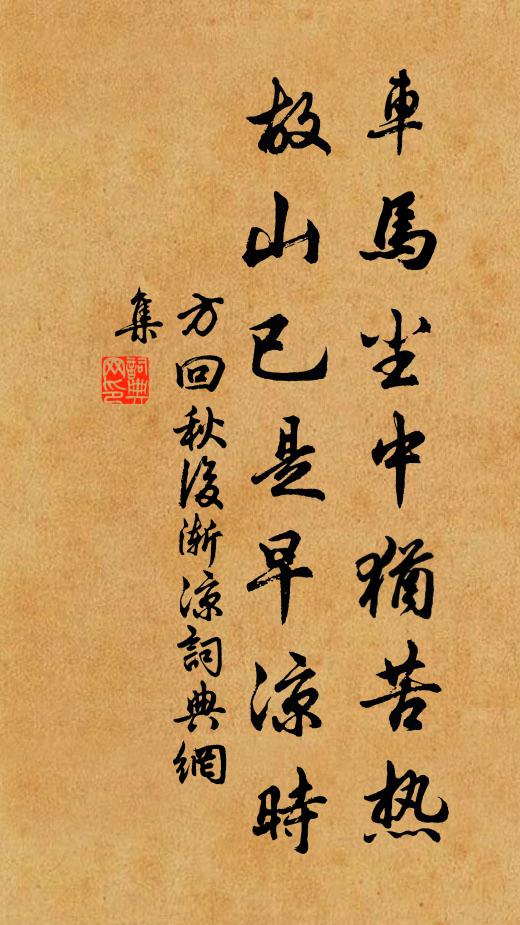 車馬尘中猶苦热
故山已是早凉時
方回秋後渐凉詞典網
集
詞典网印